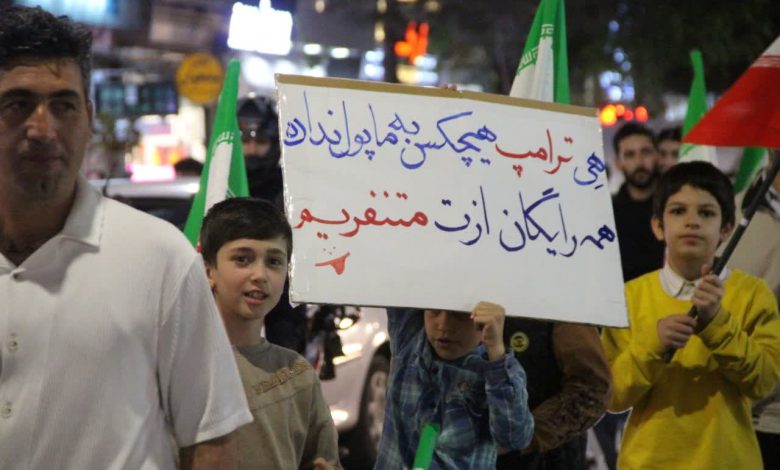 هِی ترامپ هیچکس به ما پول نداده
همه رایگان ازت متنفریم